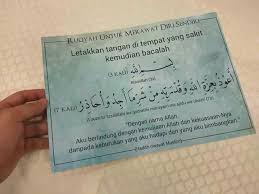 RUQYAH UNTUK MERAWAT DIRI SENDIRI
Letakkan tangan di tempat yang sakit
kemudian bacalah
(3 KALI) بِسْمِ اللَّهِ
(7 KALI) أَعُوذُ بِعِزَّةِ اللَّهِ وَقُدْرَتِهِ مِنْ شَرِّ مَا أَجِدُ وَأُحَاذِرُ
"Dengan nama Allah,
Aku berlindung dengan kemuliaan Allah dan kekuasaan-Nya
daripada keburukan yang aku hadapi dan yang aku bimbangkan."